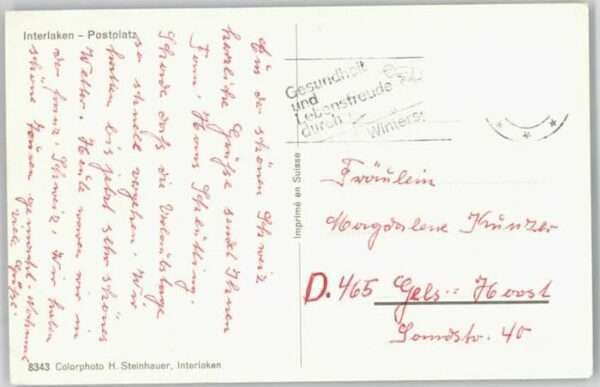 Interlaken – Postplatz
Aus der schönen Schweiz
herzliche Grüße sendet Ihnen
Fam. Hans
Schade daß die Urlaubstage
so schnell vergehen. Wir
hatten bis jetzt sehr schönes
Wetter. Heute waren wir in
der franz. Schweiz. Wir haben
schöne Touren gemacht.
viele Grüße
8343 Colorphoto H. Steinhauer, Interlaken
Imprimé en Suisse
Gesundheit
und
Lebensfreude
durch
Winters
Fräulein
Magdalene Kunzer
D. 465 Gels.-Horst
40